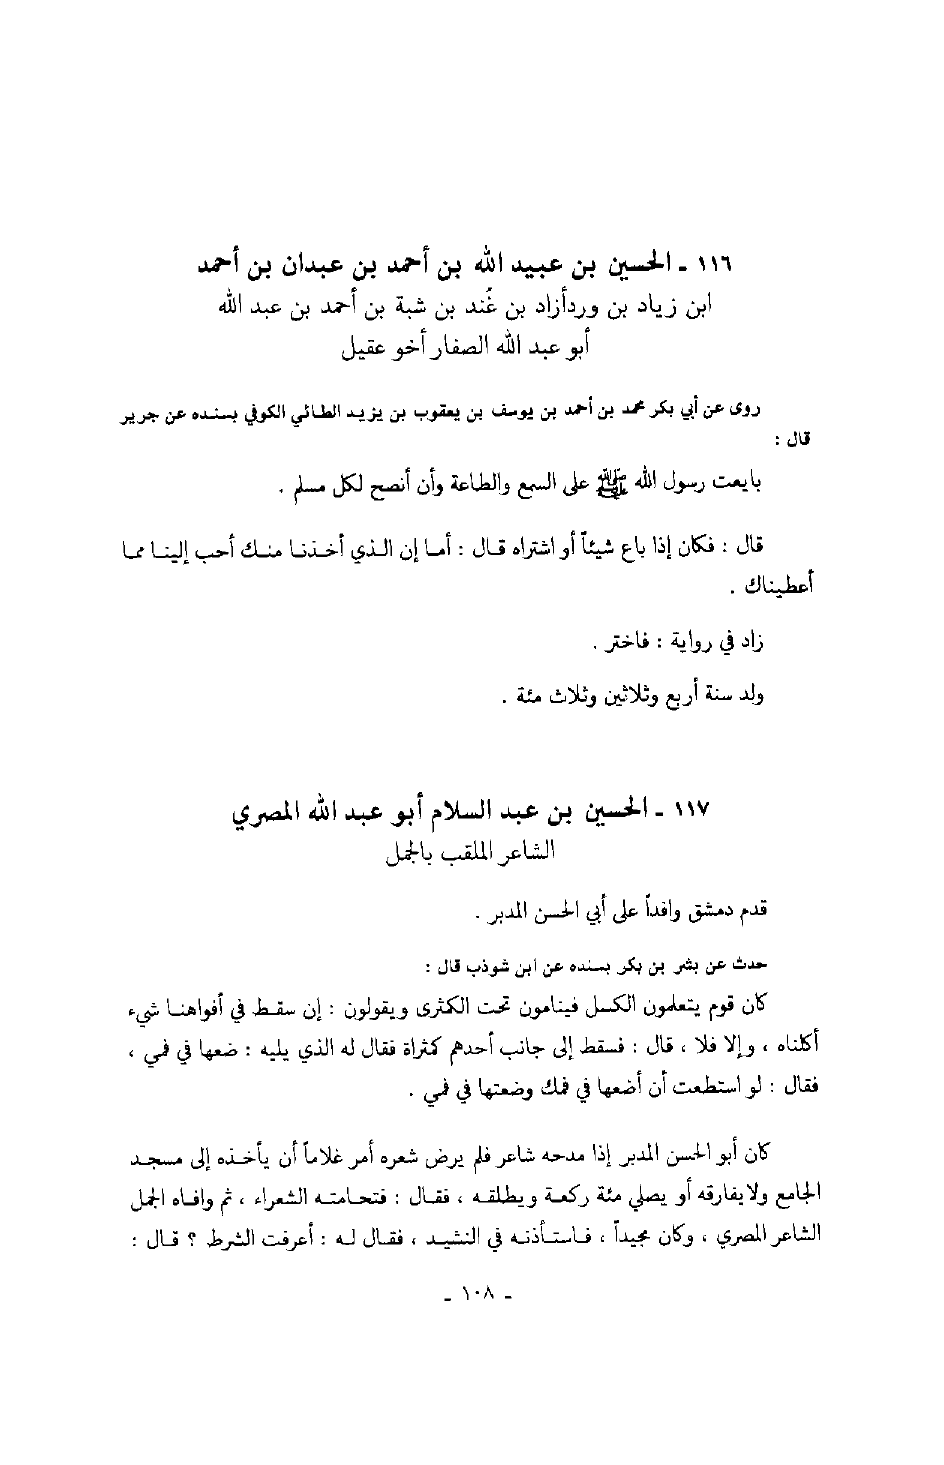 ١١٦ ـ الحسين بن عبيد الله بن أحمد بن عبدان بن أحمد
ابن زياد بن وردأزاد بن غُند بن شبة بن أحمد بن عبد الله
أبو عبد الله الصفار أخو عقيل
روى عن أبي بكر محمد بن أحمد بن يوسف بن يعقوب بن يزيد الطائي الكوفي بسنده عن جرير
قال :
بايعت رسول الله ﷺ على السمع والطاعة وأن أنصح لكل مسلم .
قال : فكان إذا باع شيئاً أو اشتراه قال : أما إن الذي أخذنا منك أحب إلينا مما
أعطيناك .
زاد في رواية : فاختر .
ولد سنة أربع وثلاثين وثلاث مئة .
١١٧ ـ الحسين بن عبد السلام أبو عبد الله المصري
الشاعر الملقب بالجمل
قدم دمشق وافداً على أبي الحسن المدبر .
حدث عن بشر بن بكر بسنده عن ابن شوذب قال :
كان قوم يتعلمون الكسل فينامون تحت الكثرى ويقولون : إن سقط في أفواهنا شيء
أكلناه ، وإلا فلا ، قال : فسقط إلى جانب أحدهم كثراة فقال له الذي يليه : ضعها في فمي ،
فقال : لو استطعت أن أضعها في فمك وضعتها في فمي .
كان أبو الحسن المدبر إذا مدحه شاعر فلم يرض شعره أمر غلاماً أن يأخذه إلى مسجد
الجامع ولا يفارقه أو يصلي مئة ركعة ويطلقه ، فقال : فتحامته الشعراء ، ثم وافاه الجمل
الشاعر المصري ، وكان مجيداً ، فاستأذنه في النشيد ، فقال له : أعرفت الشرط ؟ قال :
ـ ١٠٨ ـ